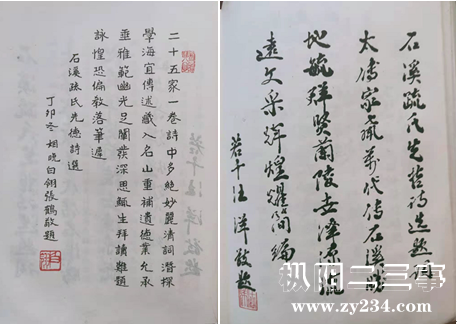 二十五家一卷詩中多絕妙麗清詞潛探
學海宜傳述藏入名山重補遺德業允承
垂雅範幽光足闡發深思鯫生拜讀難題
詠惶恐偏教落筆遲
石溪疏氏先德詩選
丁卯冬姻晚白翎張鶴敬題
石溪疏氏先哲詩選題詞
太傅家風萬代傳石溪勝
地毓群賢蘭陵世澤流徽
遠文采輝煌耀簡編
若千汪洋敬題
枞阳二三事
www.zy234.com